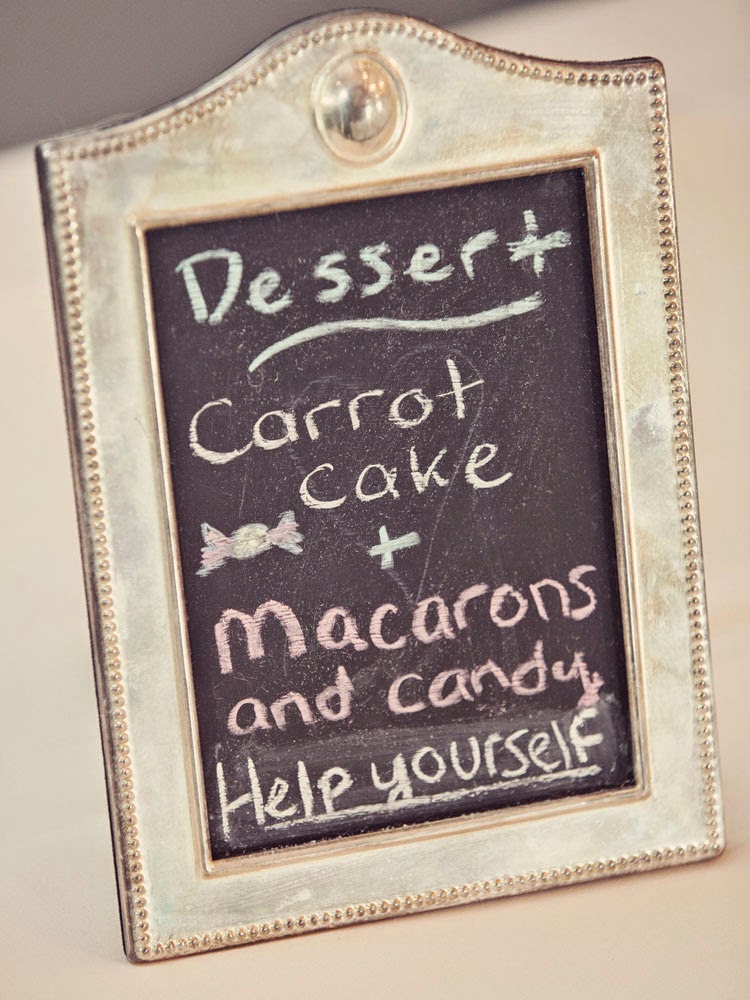 Dessert
Carrot
cake
+
Macarons
and candy
Help yourself